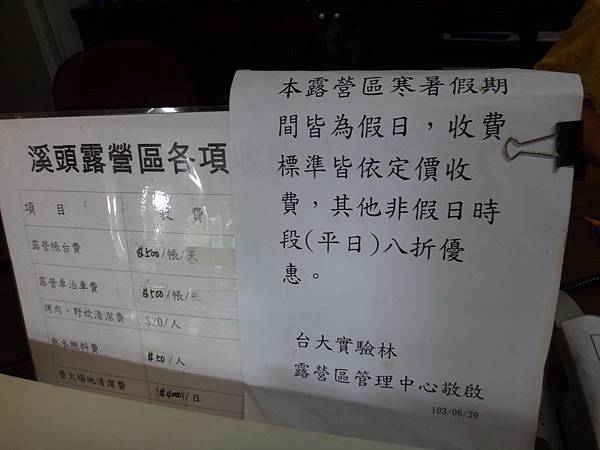 溪頭露營區各項
項 目
收 費
露營帳台費
$500/帳/天
露營車泊車費
$500/帳/天
烤肉、野炊清潔費
$20/人
熱水燃料費
$50/人
營火場地清潔費
/日
本露營區寒暑假期
間皆為假日，收費
標準皆依定價收
費，其他非假日時
段(平日)八折優
惠。
台大實驗林
露營區管理中心敬啟
103/06/20